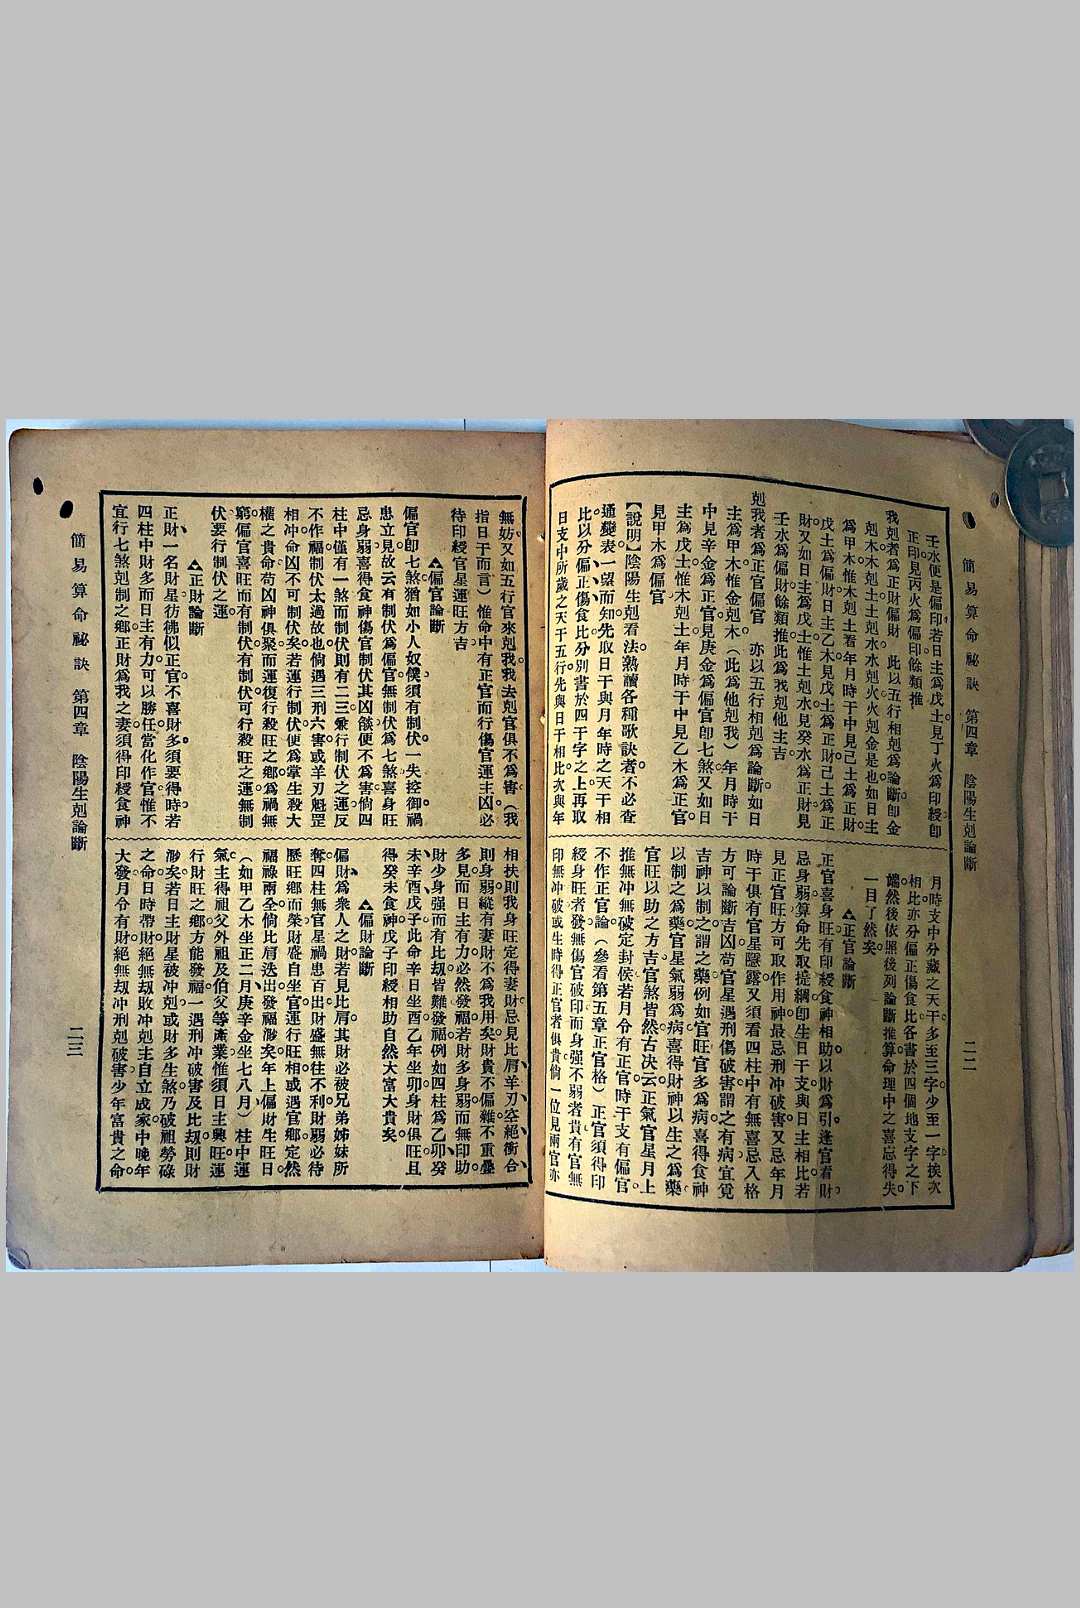 簡易算命祕訣　第四章　陰陽生剋論斷
二二
壬水便是偏印若日主爲戊土見丁火爲印綬卽
正印見丙火爲偏印餘類推
我剋者爲正財偏財　此以五行相剋爲論斷卽金
剋木木剋土土剋水水剋火火剋金是也如日主
爲甲木惟木剋土看年月時干中見己土爲正財
戊土爲偏財日主乙木見戊土爲正財己土爲正
財又如日主爲戊土惟土剋水見癸水爲正財見
壬水爲偏財餘類推此爲我剋他主吉
剋我者爲正官偏官　亦以五行相剋爲論斷如日
主爲甲木惟金剋木（此爲他剋我）年月時干
中見辛金爲正官見庚金爲偏官卽七煞又如日
主爲戊土惟木剋土年月時干中見乙木爲正官
見甲木爲偏官
【說明】陰陽生剋看法熟讀各種歌訣者不必查
通變表一望而知先取日干與月年時之天干相
比以分偏正傷食比分別書於四干字之上再取
日支中所藏之天干五行先與日干相比次與年
月時支中分藏之天干多至三字少至一字挨次
相比亦分偏正傷食比各書於四個地支字之下
端然後依照後列論斷推算命理中之喜忌得失
一目了然矣
▲正官論斷
正官喜身旺有印綬食神相助以財爲引逢官看財
忌身弱算命先取提綱卽生日干支與日主相比若
見正官旺方可取作用神最忌刑冲破害又忌年月
時干俱有官星隱露又須看四柱中有無喜忌入格
方可論斷吉凶苟官星遇刑傷破害謂之有病宜覓
吉神以制之謂之藥例如官旺官多爲病喜得食神
以制之爲藥官星氣弱爲病喜得財神以生之爲藥
官旺以助之方吉官煞皆然古决云正氣官星月上
推無冲無破定封侯若月令有正官時干支有偏官
不作正官論（參看第五章正官格）正官須得印
綬身旺者發無傷官破印而身强不弱者貴有官無
印無冲破或生時得正官者俱貴倘一位見兩官亦
無妨又如五行官來剋我我去剋官俱不爲害（我
指日干而言）惟命中有正官而行傷官運主凶必
待印綬官星運旺方吉
▲偏官論斷
偏官卽七煞猶如小人奴僕須有制伏一失控御禍
患立見故云有制伏爲偏官無制伏爲七煞喜身旺
忌身弱喜得食神傷官制伏其凶燄便不爲害倘四
柱中僅有一煞而制伏則有二三乘行制伏之運反
不作福制伏太過故也倘遇三刑六害或羊刃魁罡
相冲命凶不可制伏矣若運行制伏便爲掌生殺大
權之貴命苟凶神俱聚而運復行殺旺之鄉爲禍無
窮偏官喜旺而有制伏有制伏可行殺旺之運無制
伏要行制伏之運
▲正財論斷
正財一名財星彷彿似正官不喜財多須要得時若
四柱中財多而日主有力可以勝任當化作官惟不
宜行七煞剋制之鄉正財爲我之妻須得印綬食神
相扶則我身旺定得妻財忌見比肩羊刃空絕衝合
則身弱縱有妻財不爲我用矣財貴不偏雜不重疊
多見而日主有力必然發福若財多身弱而無印助
財少身强而有比刧皆難發福例如四柱爲乙卯癸
未辛酉戊子此命辛日坐酉乙年坐卯身財俱旺且
得癸未食神戊子印綬相助自然大富大貴矣
▲偏財論斷
偏財爲衆人之財若見比肩其財必被兄弟姊妹所
奪四柱無官星禍患百出財盛無往不利財弱必待
歷旺鄉而榮財盛自坐官運行旺相或遇官鄉定然
福祿兩全倘比肩迭出發福渺矣年上偏財生旺日
（如甲乙木坐正二月庚辛金坐七八月）柱中運
氣主得祖父外祖及伯父等產業惟須日主興旺運
行財旺之鄉方能發福一遇刑冲破害及比刧則財
渺矣若日主財星被冲剋或財多生煞乃破祖勞碌
之命日時帶財絕無刧敗冲剋主自立成家中晚年
大發月令有財絕無刧冲刑剋破害少年富貴之命
簡易算命祕訣　第四章　陰陽生剋論斷
二三